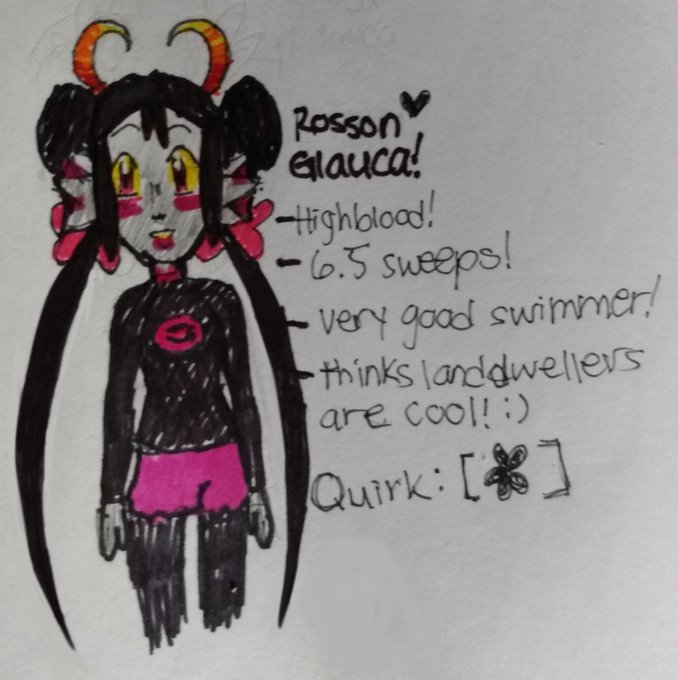 Rosson ♥
Glauca!
-Highblood!
- 6.5 sweeps!
- very good swimmer!
- thinks landdwellers
are cool! :)
Quirk: [*]